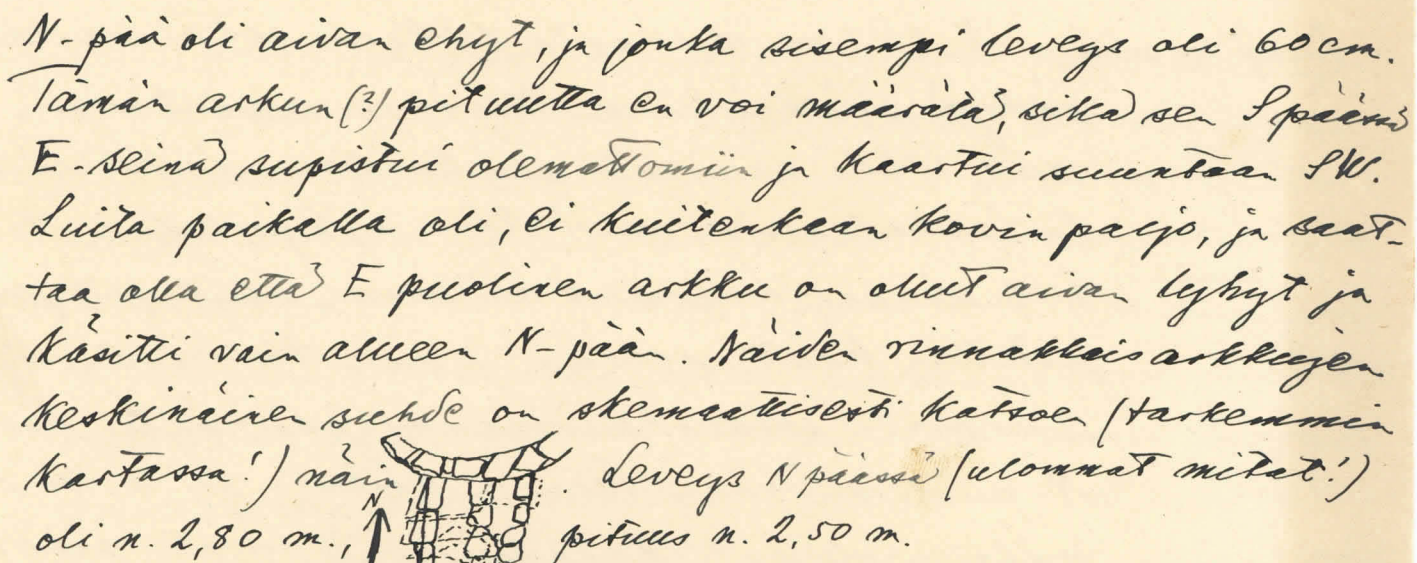 N-pää oli aivan ehyt, ja jonka sisempi leveys oli 60 cm.
Tämän arkun (?) pituutta en voi määrätä, sillä sen S päässä
E-seinä supistui olemattomiin ja kaartui suuntaan SW.
Luita paikalla oli, ei kuitenkaan kovin paljo, ja saat-
taa olla että E puolinen arkku on ollut aivan lyhyt ja
käsitti vain alueen N-pään. Näiden rinnakkaisarkkujen
keskinäinen suhde on skemaattisesti katsoen (tarkemmin
kartassa!) näin . Leveys N päässä (ulommat mitat!)
N
oli n. 2,80 m., pituus n. 2,50 m.